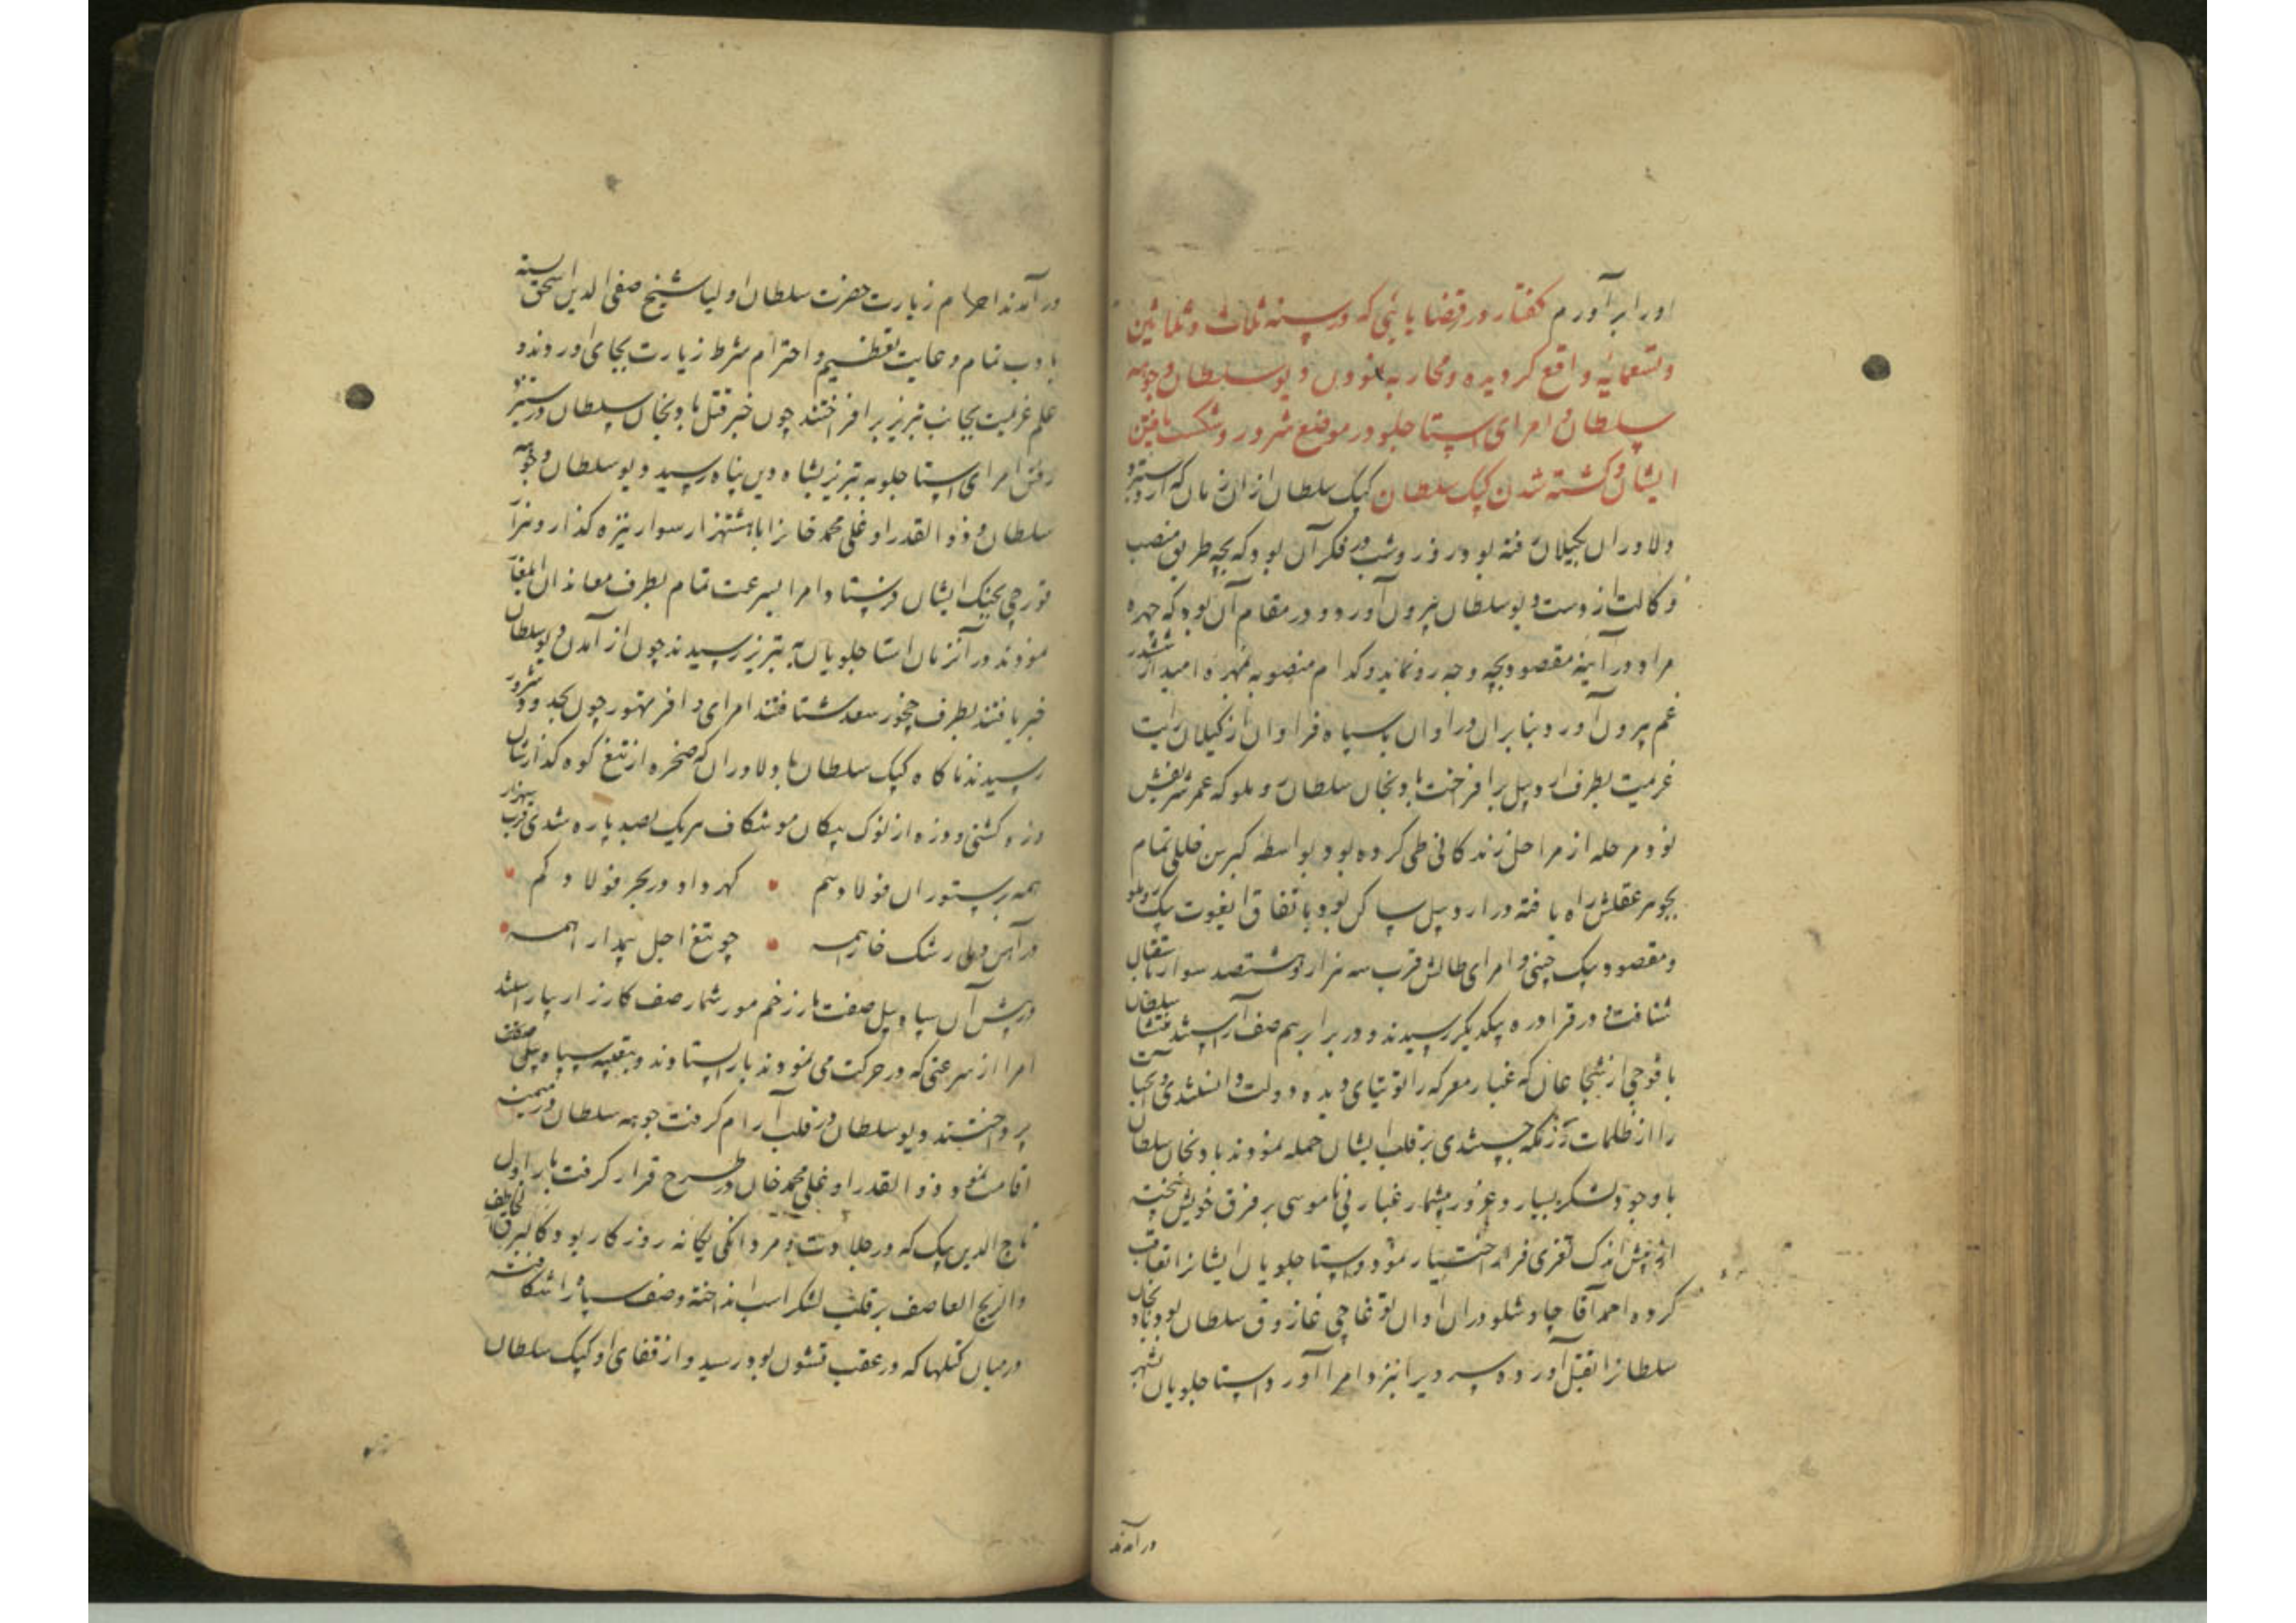 اورا برآورم گفتار در قضایایی که در سنه ثلاث و ثلاثین
و تسعمایه واقع گردیده و محاربه نمودن دیو سلطان و جوهه
سلطان و امرای استاجلو در موضع شرور و شکست یافتن
ایشان و کشته شدن کپک سلطان کپک سلطان از آن زمان که از دستبرد
دلاوران بگیلان رفته بود روز و شب در فکر آن بود که بچه طریق منصب
وکالت از دست دیو سلطان بیرون آورد و در مقام آن بود که چهره
مراد در آینه مقصود بچه وجه رو نماید و کدام منصوبه مهره امید از ششدر
غم بیرون آورد بنابران در اوان با سپاه فراوان از گیلان رایت
عزیمت بطرف اردبیل برافراخت بادنجان سلطان روملو که عمر شریفش
نود مرحله از مراحل زندگانی طی کرده بود و بواسطه کبر سن خللی تمام
بجوهر عقلش راه یافته در اردبیل ساکن بود باتفاق ایغوت بیک روملو
و مقصود بیک چپنی و امرای طالش قرب سه هزار و هشتصد سوار باستقبال
شتافت در قرادره بیکدیگر رسیدند و در برابر هم صف آراستند منتشا سلطان
با فوجی از شجاعان که غبار معرکه را توتیای دیده دولت دانستندی و آب حیات
را از ظلمات رزمگه جستندی بر قلب ایشان حمله نمودند بادنجان سلطان
با وجود لشکر بسیار و غرور بیشمار غبار بی ناموسی بر فرق خویش بیخته
از پیش اندک نفری فرار اختیار نمود و استاجلویان ایشانرا تعاقب
کرده احمد آقا چاوشلو دران اوان توغاچی غازوق سلطان بود بادنجان
سلطانرا بقتل آورده سر ویرا نزد امرا آورد استاجلویان بشهر
درآمدند
درآمدند احرام زیارت حضرت سلطان اولیا شیخ صفی الدین اسحق بسته
بادب تمام و عایت تعظیم و احترام شرط زیارت بجای اوردند و
علم عزیمت بجانب تبریز برافراختند چون خبر قتل بادنجان سلطان در ستیز
رفتن امرای استاجلو به تبریز بشاه دین پناه رسید دیو سلطان و جوهه
سلطان و ذوالقدر اوغلی محمد خانرا با هشتهزار سوار نیزه گذار و نبرد
قورچی بجنک ایشان فرستاد امرا بسرعت تمام بطرف معاندان ایلغار
نمودند در آنزمان استاجلویان به تبریز رسیدند چون از آمدن دیو سلطان
خبر یافتند بطرف چخور سعد شتافتند امرای وافر تهور چون بحدود شرور
رسیدند ناکاه کپک سلطان با دلاوران که صخره از تیغ کوه گذارشان
وزه کشتی و وزه از نوک پیکان مو شکاف هریک بصد پاره شدی قرب بهزار
همه بر ستوران فولاد سم گهر داد در بحر فولاد گم
در آهن دلی رشک خارا همه چو تیغ اجل بیمدارا همه
در پیش آن سپاه پیل صفت بار زخم مور شمار صف کارزار بیاراستند
امرا از سرعتی که در حرکت می نمودند باز ایستادند و بتعبیه سپاه پیل صفت
پرداختند دیو سلطان در قلب آرام گرفت جوهه سلطان در میمنه
اقامت نمود و ذوالقدر اوغلی محمد خان در طرح قرار گرفت بار اول
تاج الدین بیک که در جلادت و مردانکی یکانه روزکار بود کالبرق الخاطف
والریح العاصف بر قلب لشکر اسب انداخته و صف سپاه را شکافته
در میان کتلها که در عقب قشون بود رسید و از قفای او کپک سلطان